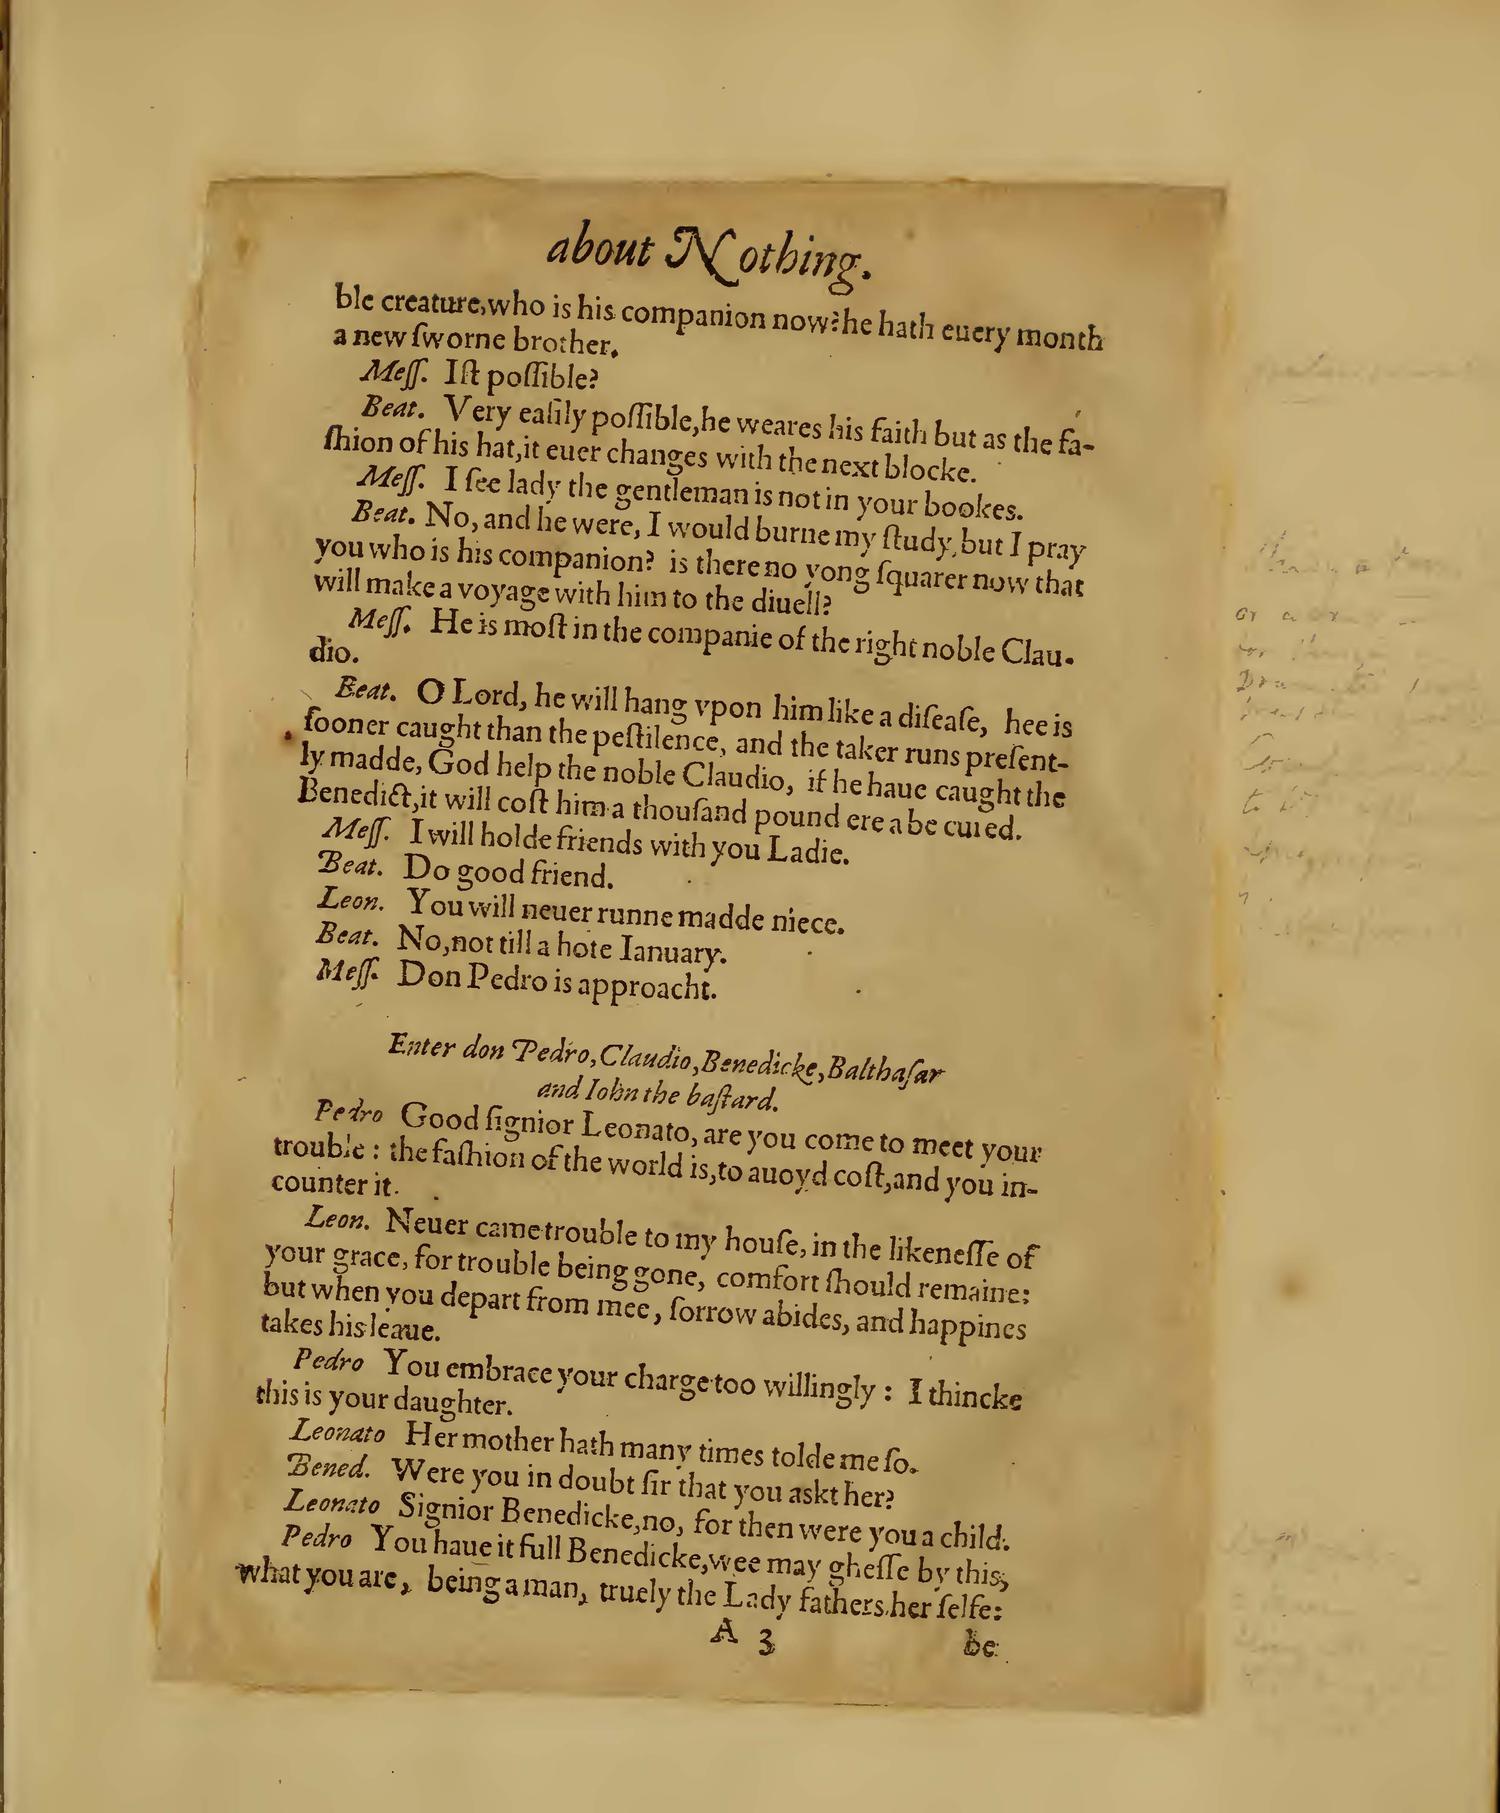 about Nothing.
ble creature, who is his companion now? he hath euery month
a new ſworne brother.
Meſſ. Iſt poſſible?
Beat. Very eaſily poſſible, he weares his faith but as the fa-
ſhion of his hat, it euer changes with the next blocke.
Meſſ. I ſee lady the gentleman is not in your bookes.
Beat. No, and he were, I would burne my ſtudy, but I pray
you who is his companion? is there no yong ſquarer now that
will make a voyage with him to the diuell?
Meſſ. He is moſt in the companie of the right noble Clau-
dio.
Beat. O Lord, he will hang vpon him like a diſeaſe, hee is
ſooner caught than the peſtilence, and the taker runs preſent-
ly madde, God help the noble Claudio, if he haue caught the
Benedict, it will coſt him a thouſand pound ere a be cured.
Meſſ. I will holde friends with you Ladie.
Beat. Do good friend.
Leon. You will neuer runne madde niece.
Beat. No, not till a hote Ianuary.
Meſſ. Don Pedro is approacht.
Enter don Pedro, Claudio, Benedicke, Balthaſar
and Iohn the baſtard.
Pedro Good ſignior Leonato, are you come to meet your
trouble: the faſhion of the world is, to auoyd coſt, and you in-
counter it.
Leon. Neuer came trouble to my houſe, in the likeneſſe of
your grace, for trouble being gone, comfort ſhould remaine:
but when you depart from mee, ſorrow abides, and happines
takes his leaue.
Pedro You embrace your charge too willingly: I thincke
this is your daughter.
Leonato Her mother hath many times tolde me ſo.
Bened. Were you in doubt ſir that you askt her?
Leonato Signior Benedicke, no, for then were you a child.
Pedro You haue it full Benedicke, wee may gheſſe by this,
what you are, being a man, truely the Lady fathers her ſelfe:
A 3 be